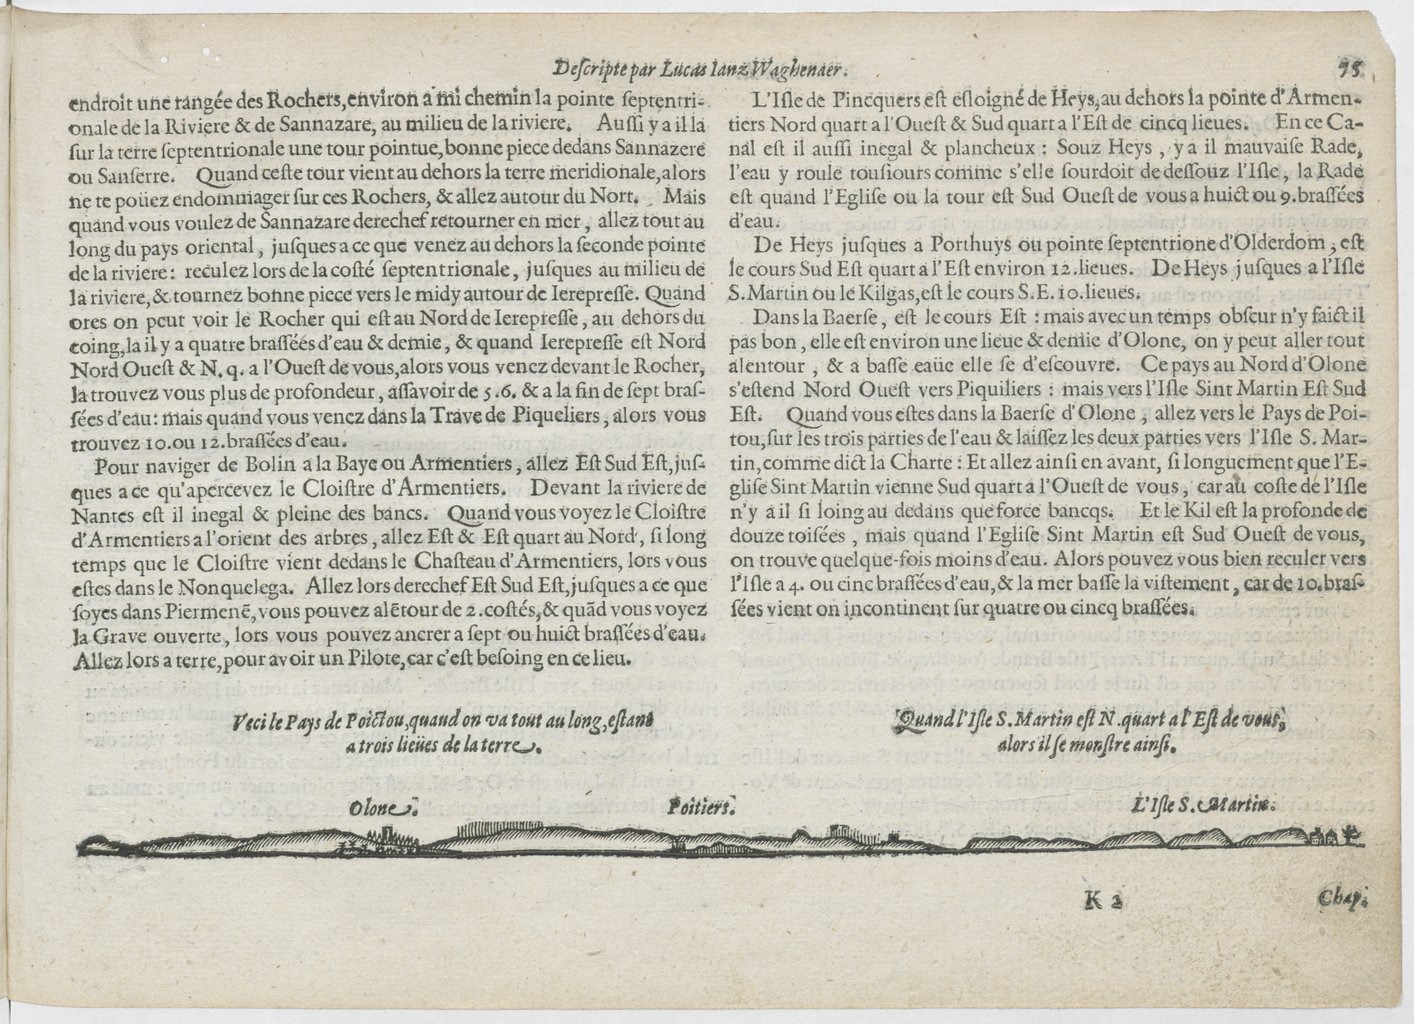 Descripte par Lucas Ianz Waghenaer.
75
endroit une rangée des Rochers, environ a mi chemin la pointe septentri-
onale de la Riviere & de Sannazare, au milieu de la riviere. Aussi y a il la
sur la terre septentrionale une tour pointue, bonne piece dedans Sannazere
ou Sanserre. Quand ceste tour vient au dehors la terre meridionale, alors
ne te poüez endommager sur ces Rochers, & allez autour du Nort. Mais
quand vous voulez de Sannazare derechef retourner en mer, allez tout au
long du pays oriental, jusques a ce que venez au dehors la seconde pointe
de la riviere: reculez lors de la costé septentrionale, jusques au milieu de
la riviere, & tournez bonne piece vers le midy autour de Ierepresse. Quand
ores on peut voir le Rocher qui est au Nord de Ierepresse, au dehors du
coing, la il y a quatre brasséés d'eau & demie, & quand Ierepresse est Nord
Nord Ouest & N. q. a l'Ouest de vous, alors vous venez devant le Rocher,
la trouvez vous plus de profondeur, assavoir de 5.6. & a la fin de sept bras-
sées d'eau: mais quand vous venez dans la Trave de Piqueliers, alors vous
trouvez 10. ou 12. brassées d'eau.
Pour naviger de Bolin a la Baye ou Armentiers, allez Est Sud Est, jus-
ques a ce qu'apercevez le Cloistre d'Armentiers. Devant la riviere de
Nantes est il inegal & pleine des bancs. Quand vous voyez le Cloistre
d'Armentiers a l'orient des arbres, allez Est & Est quart au Nord, si long
temps que le Cloistre vient dedans le Chasteau d'Armentiers, lors vous
estes dans le Nonquelega. Allez lors derechef Est Sud Est, jusques a ce que
soyes dans Piermenē, vous pouvez alētour de 2. costés, & quãd vous voyez
la Grave ouverte, lors vous pouvez ancrer a sept ou huict brassées d'eau.
Allez lors a terre, pour avoir un Pilote, car c'est besoing en ce lieu.
L'Isle de Pincquers est esloigné de Heys, au dehors la pointe d'Armen-
tiers Nord quart a l'Ouest & Sud quart a l'Est de cincq lieues. En ce Ca-
nal est il aussi inegal & plancheux: Souz Heys, y a il mauvaise Rade,
l'eau y roule tousiours comme s'elle sourdoit de dessouz l'Isle, la Rade
est quand l'Eglise ou la tour est Sud Ouest de vous a huict ou 9. brassées
d'eau.
De Heys jusques a Porthuys ou pointe septentrione d'Olderdom, est
le cours Sud Est quart a l'Est environ 12. lieues. De Heys jusques a l'Isle
S. Martin ou le Kilgas, est le cours S.E. 10. lieues.
Dans la Baerse, est le cours Est: mais avec un temps obscur n'y faict il
pas bon, elle est environ une lieue & demie d'Olone, on y peut aller tout
alentour, & a basse eaüe elle se d'escouvre. Ce pays au Nord d'Olone
s'estend Nord Ouest vers Piquiliers: mais vers l'Isle Sint Martin Est Sud
Est. Quand vous estes dans la Baerse d'Olone, allez vers le Pays de Poi-
tou, sur les trois parties de l'eau & laissez les deux parties vers l'Isle S. Mar-
tin, comme dict la Charte: Et allez ainsi en avant, si longuement que l'E-
glise Sint Martin vienne Sud quart a l'Ouest de vous, car au coste de l'Isle
n'y a il si loing au dedans que force bancqs. Et le Kil est la profonde de
douze toisées, mais quand l'Eglise Sint Martin est Sud Ouest de vous,
on trouve quelque-fois moins d'eau. Alors pouvez vous bien reculer vers
l'Isle a 4. ou cinc brassées d'eau, & la mer basse la vistement, car de 10. bras-
sées vient on incontinent sur quatre ou cincq brassées.
Veci le Pays de Poictou, quaud on va tout au long, estans
a trois lieües de la terre.
Quand l'Isle S. Martin est N. quart a l'Est de vous,
alors il se monstre ainsi.
Olone.
Poitiers.
L'Isle S. Martin.
K 2
Chap.